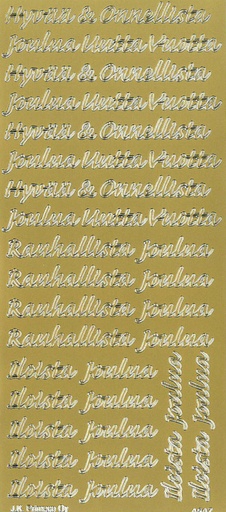 Hyvää & Onnellista
Joulua Uutta Vuotta
Hyvää & Onnellista
Joulua Uutta Vuotta
Hyvää & Onnellista
Joulua Uutta Vuotta
Hyvää & Onnellista
Joulua Uutta Vuotta
Rauhallista Joulua
Rauhallista Joulua
Rauhallista Joulua
Rauhallista Joulua
Iloista Joulua
Iloista Joulua
Iloista Joulua
Iloista Joulua
Iloista Joulua
Iloista Joulua
Iloista Joulua
J.K. Primeco Oy